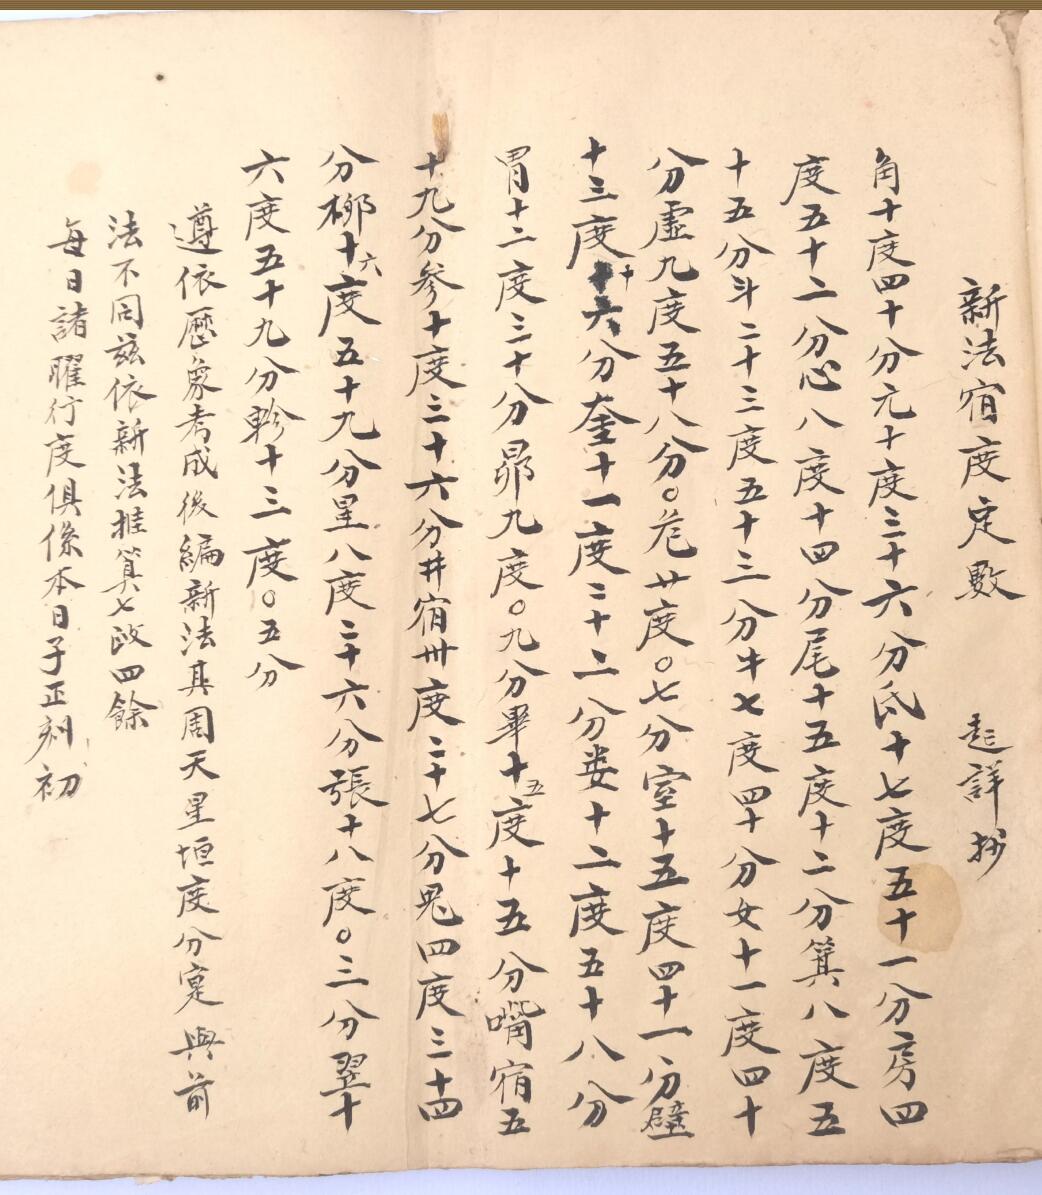 新法宿度定數　起詳抄
角十度四十分元十度三十六分氐十七度五十一分房四
度五十二分心八度十四分尾十五度十二分箕八度五
十五分斗二十三度五十三分牛七度四十分女十一度四十
分虛九度五十八分〇危廿度〇七分室十五度四十一分壁
十三度十六分奎十一度三十二分娄十二度五十八分
胃十二度三十分昴九度〇九分畢十五度十五分嘴宿五
十九分参十度三十六分井宿卅度二十七分鬼四度三十四
分柳十六度五十九分星八度二十六分張十八度〇三分翌十
六度五十九分軫十三度〇五分
遵依歷象考成後編新法其周天星垣度分寔與前
法不同兹依新法推算七政四餘
每日諸曜行度俱係本日子正刻初